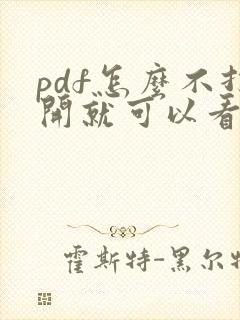 pdf怎麼不打
開就可以看
霍斯特-黑尔特